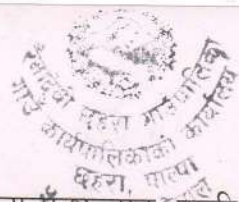 रैनादेवी छहरा गाउँपालिका
गाउँ कार्यपालिकाको कार्यालय
छहरा, पाल्पा